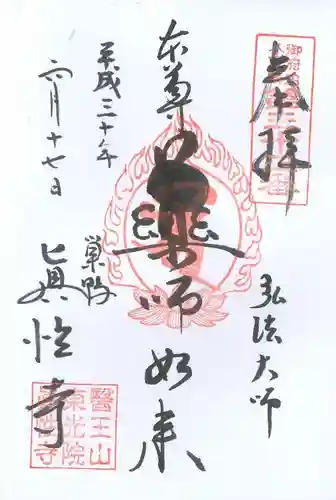 奉拝
弘法大師
本尊
薬師如来
平成三十年
六月十七日
巣鴨
眞性寺
醫王山
東光院
眞性寺